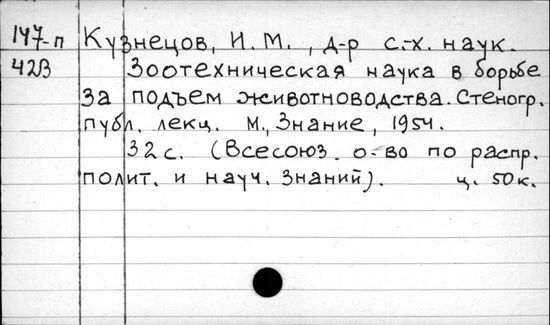 147-п Кузнецов, И. М., д-р с.-х. наук.
423 Зоотехническая наука в борьбе
за подъем животноводства. Стеногр.
публ. лекц. М., Знание, 1954.
32 с. (Всесоюз. о-во по распр.
полит. и науч. знаний). ц. 50 к.